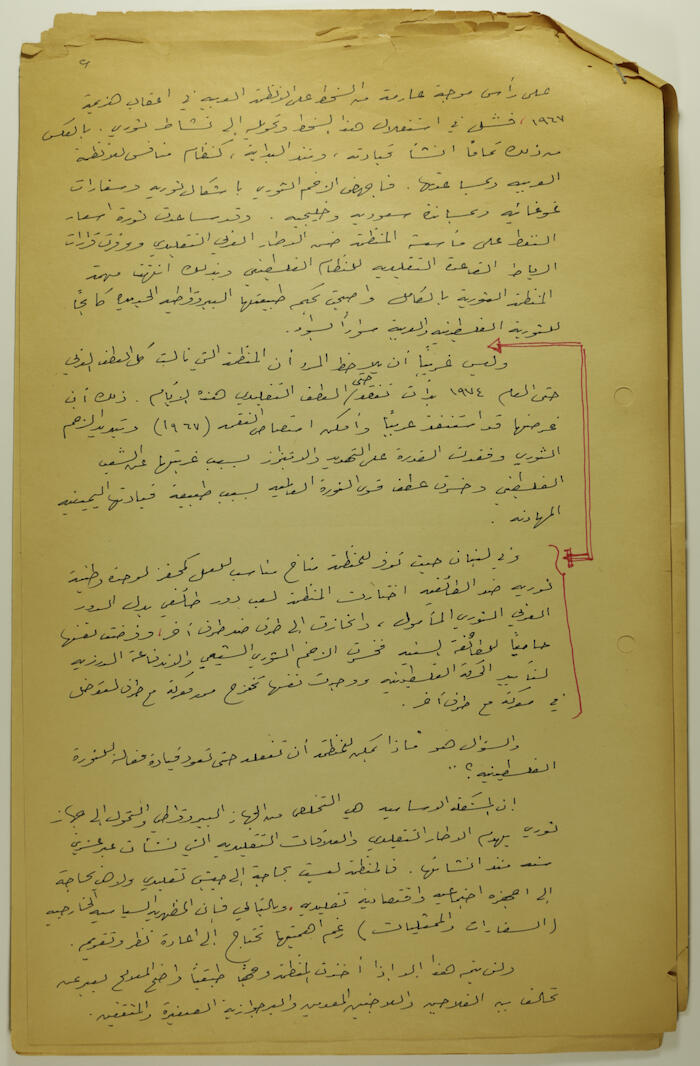 ٤
على رأس موجة عارمة من السخط على الانظمة العربية في اعقاب هزيمة
١٩٦٧، فشل في استغلال هذا السخط وتحويله إلى نشاط ثوري. بالعكس
من ذلك تماماً انشأ قيادته، ومنذ البداية، كنظام منافس للانظمة
العربية وبمساعدتها. فأجهض الزخم الثوري باشكال ثورية وسفارات
غوغائية وبمساندة سعودية وخليجية. وقد ساعدت ثورة اسعار
النفط على مأسسة المنظمة ضمن الاطار العربي التقليدي ووفرت قرارات
الرباط القاعدة التقليدية للنظام الفلسطيني وبذلك انتهت مهمة
المنظمة الثورية بالكامل واصبحت بحكم طبيعتها البيروقراطية الجديدة كابحاً
للثورية الفلسطينية والعربية سواءً بسواء.
وليس غريباً أن يلاحظ المرء أن المنظمة التي نالت كل العطف العربي
حتى العام ١٩٧٤ بدأت تفقد حتى العطف التقليدي هذه الأيام. ذلك أن
غرضها قد استنفذ عربياً وأمكن امتصاص النقمة (١٩٦٧) وتبديد الزخم
الثوري وفقدت القدرة على التهديد والابتزاز بسبب غربتها عن الشعب
الفلسطيني وخسرت عطف قوى الثورة العالمية بسبب طبيعة قيادتها اليمينية
المهادنة.
وفي لبنان حيث توفر للمنظمة مناخ مناسب للعمل كمحفز لوحدة وطنية
ثورية ضد الطائفية اختارت المنظمة لعب دور طائفي بدل الدور
العربي الثوري المأمول، وانحازت إلى طرف ضد طرف آخر، وفرضت نفسها
حامياً للطائفة السنية فخسرت الزخم الثوري الشيعي والاندفاعة الدرزية
لتأييد الحركة الفلسطينية ووجدت نفسها تخرج من معركة مع طرف لتخوض
في معركة مع طرف آخر.
والسؤال هو ماذا يمكن للمنظمة أن تفعله حتى تعود قيادة فعالة للثورة
الفلسطينية؟..
إن المسألة الاساسية هي التخلص من الجهاز البيروقراطي والتحول إلى جهاز
ثوري يهدم الاطار التقليدي والعلاقات التقليدية التي نشأت عبر عشرين
سنة منذ انشائها. فالمنظمة ليست بحاجة إلى جيش تقليدي ولا هي بحاجة
إلى اجهزة اجتماعية واقتصادية تقليدية، وبالتالي فإن المظهرية السياسية الخارجية
(السفارات والممثليات) رغم أهميتها تحتاج إلى اعادة نظر وتقويم.
ولن يتم هذا إلا إذا أخذت المنظمة وجهاً طبقياً واضح الملامح يعبر عن
تحالف بين الفلاحين واللاجئين المعدمين والبرجوازية الصغيرة والمثقفين.